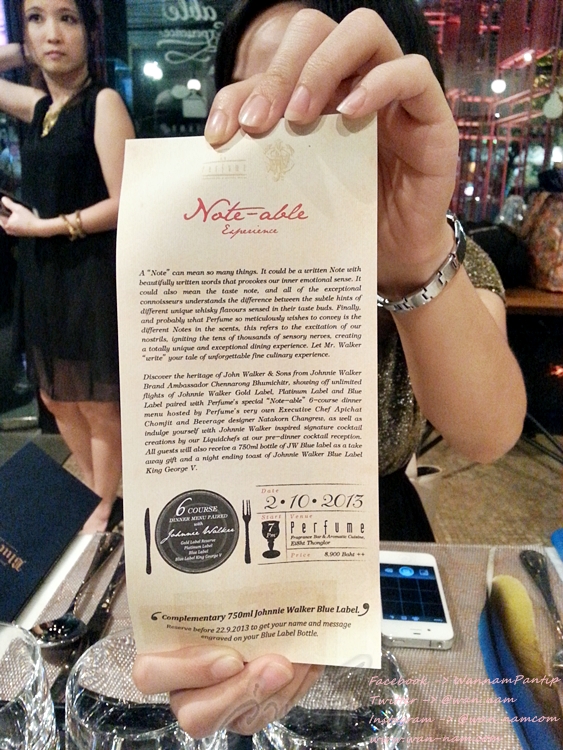 Note-able
Experience
A "Note" can mean so many things. It could be a written Note with
beautifully written words that provokes our inner emotional sense. It
could also mean the taste note, and all of the exceptional
connoisseurs understands the difference between the subtle hints of
different unique whisky flavours sensed in their taste buds. Finally,
and probably what Perfume so meticulously wishes to convey is the
different Notes in the scents, this refers to the excitation of our
nostrils, igniting the tens of thousands of sensory nerves, creating
a totally unique and exceptional dining experience. Let Mr. Walker
"write" your tale of unforgettable fine culinary experience.
Discover the heritage of John Walker & Sons from Johnnie Walker
Brand Ambassador Chennarong Bhumichitr, showing off unlimited
flights of Johnnie Walker Gold Label, Platinum Label and Blue
Label paired with Perfume's special "Note-able" 6-course dinner
menu hosted by Perfume's very own Executive Chef Apichat
Chomjit and Beverage designer Natakorn Changrew, as well as
indulge yourself with Johnnie Walker inspired signature cocktail
creations by our Liquidchefs at our pre-dinner cocktail reception.
All guests will also receive a 750ml bottle of JW Blue label as a take
away gift and a night ending toast of Johnnie Walker Blue Label
King George V.
6 COURSE
DINNER MENU PAIRED
with
Johnnie Walker
Gold Label Reserve
Platinum Label
Blue Label
Blue Label King George V
Date
2•10•2013
Start
7
Pm
Venue
Perfume
Fragrance Bar & Aromatic Cuisine,
Eight Thonglor
Price
8,900 Baht ++
"Complementary 750ml Johnnie Walker Blue Label."
Reserve before 22.9.2013 to get your name and message
engraved on your Blue Label Bottle.
Facebook -> WannamPantip
Twitter -> @wan_nam
Instagram -> @wan_namcom